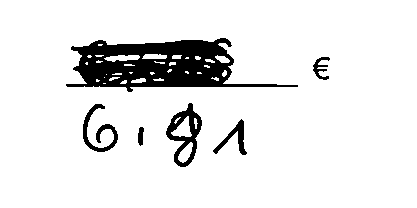 €
6,81